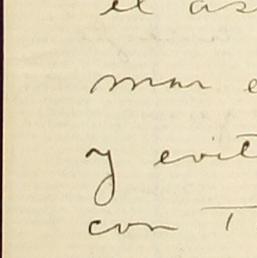 el as
mar e
y evit
con T